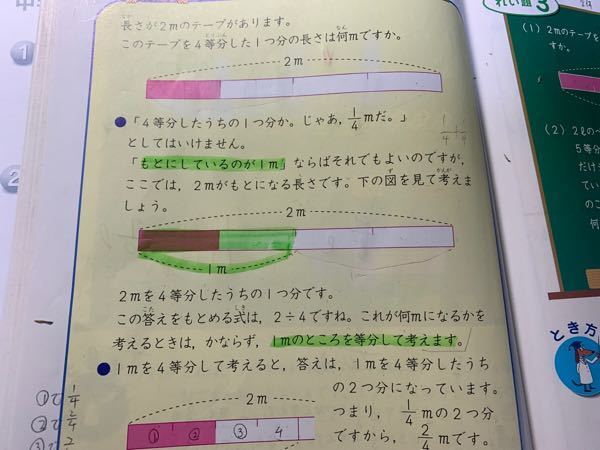 長さが2mのテープがあります。
このテープを4等分した1つ分の長さは何mですか。
2m
●「4等分したうちの1つ分か。じゃあ，1/4mだ。」
としてはいけません。
「もとにしているのが1m」ならばそれでもよいのですが，
ここでは，2mがもとになる長さです。下の図を見て考えま
しょう。
2m
1m
2mを4等分したうちの1つ分です。
この答えをもとめる式は，2÷4ですね。これが何mになるかを
考えるときは，かならず，1mのところを等分して考えます。
●1mを4等分して考えると，答えは，1mを4等分したうち
の2つ分になっています。
つまり，1/4mの2つ分
ですから，2/4mです。
2m
① ② ③ 4
1
2
①で1/4
②で2/4
れい題3
(1) 2mのテープを
すか。
(2) 2ℓの
5等分
だけ
てい
のこ
何
とき方